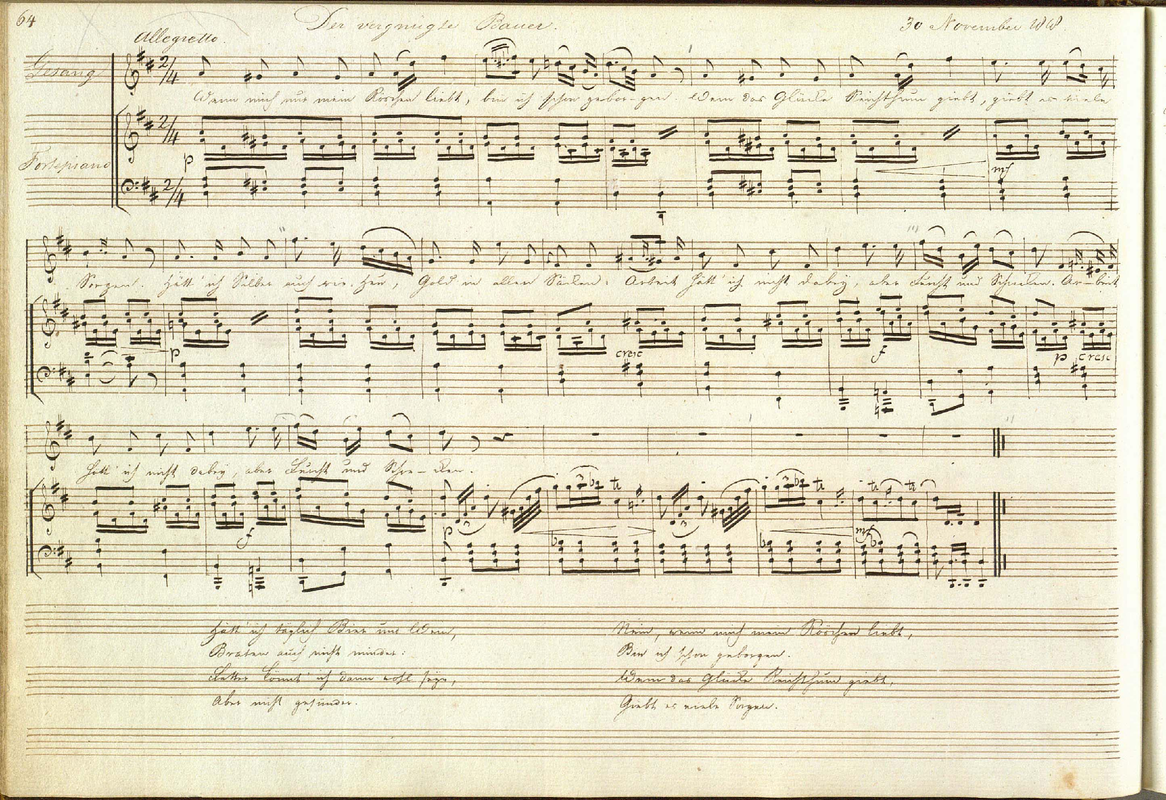 64 Der vergnügte Bauer. 30 November 1818.
Allegretto.
Gesang
Wenn mich nur mein Röschen liebt, bin ich schon gebor-gen Wem das Glücke Reichthum giebt, giebt es viele
Fortepiano
p mf
Sorgen. Hätt' ich Silber auch Gold in allen Arbeit hätt' ich nicht dabey, aber und Arbeit
p cresc f p cresc
hätt' ich nicht dabey, aber und
f p tr tr mf tr tr
Hätt' ich täglich Bier und Wein, Nein, wenn mich mein Röschen liebt,
Braten auch nicht minder: Bin ich schon geborgen.
könnt' ich dann wohl seyn, Wem das Glücke Reichthum giebt,
Aber nicht gesünder. Giebt es viele Sorgen.